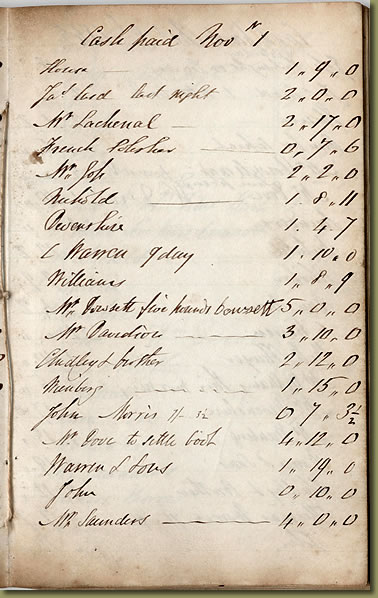 Cash paid Novr 1
House — 1 " 9 " 0
Jas last night 2 " 0 " 0
Mr Lachenal — 2 " 17 " 0
French Polisher — 0 " 7 " 6
Mr Jops 2 " 2 " 0
— 1 " 8 " 11
Devonshire 1 " 4 " 7
L Warren 9 day 1 " 10 " 0
Williams 1 " 8 " 9
Mr Dowsett five pounds Dowsett 5 " 0 " 0
Mr Davidson — 3 " 10 " 0
Chidley & brother 2 " 12 " 0
1 " 15 " 0
John Morris 0 7 " 3½
Mr Dove to settle 4 " 12 " 0
Warren & Sons 1 " 19 " 0
John 0 " 10 " 0
Mr Saunders — 4 " 0 " 0